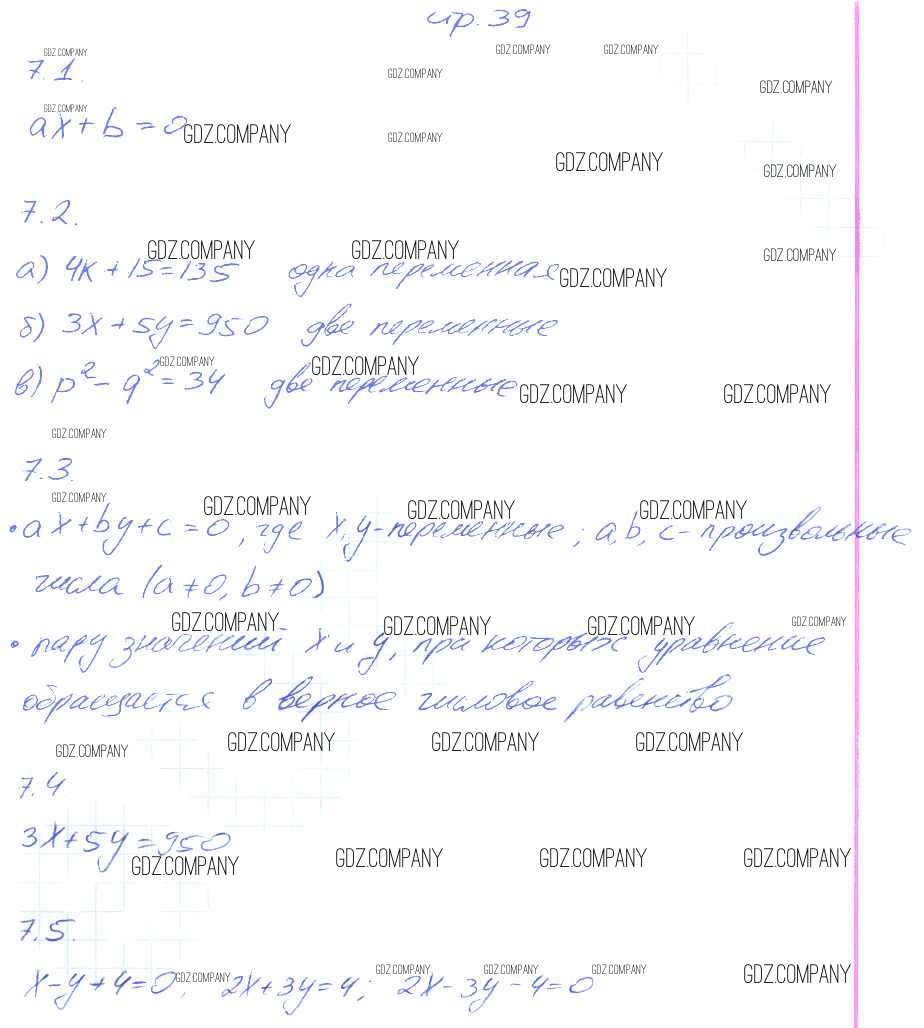 стр. 39
GDZ.COMPANY GDZ.COMPANY GDZ.COMPANY
7.1.
GDZ.COMPANY GDZ.COMPANY
GDZ.COMPANY
ax + b = 0 GDZ.COMPANY GDZ.COMPANY
GDZ.COMPANY GDZ.COMPANY
7.2.
GDZ.COMPANY GDZ.COMPANY GDZ.COMPANY
а) 4к + 15 = 135 одна переменная GDZ.COMPANY
б) 3x + 5y = 950 две переменные
GDZ.COMPANY GDZ.COMPANY
в) p² - q² = 34 две переменные GDZ.COMPANY GDZ.COMPANY
GDZ.COMPANY
7.3.
GDZ.COMPANY GDZ.COMPANY GDZ.COMPANY GDZ.COMPANY
• ax + by + c = 0, где x, y - переменные; a, b, c - произвольные
числа (a ≠ 0, b ≠ 0)
GDZ.COMPANY GDZ.COMPANY GDZ.COMPANY GDZ.COMPANY
• пару значений x и y, при которых уравнение
обращается в верное числовое равенство
GDZ.COMPANY GDZ.COMPANY GDZ.COMPANY GDZ.COMPANY
7.4
3x + 5y = 950
GDZ.COMPANY GDZ.COMPANY GDZ.COMPANY GDZ.COMPANY
7.5.
GDZ.COMPANY GDZ.COMPANY GDZ.COMPANY GDZ.COMPANY GDZ.COMPANY
x - y + 4 = 0; 2x + 3y = 4; 2x - 3y - 4 = 0